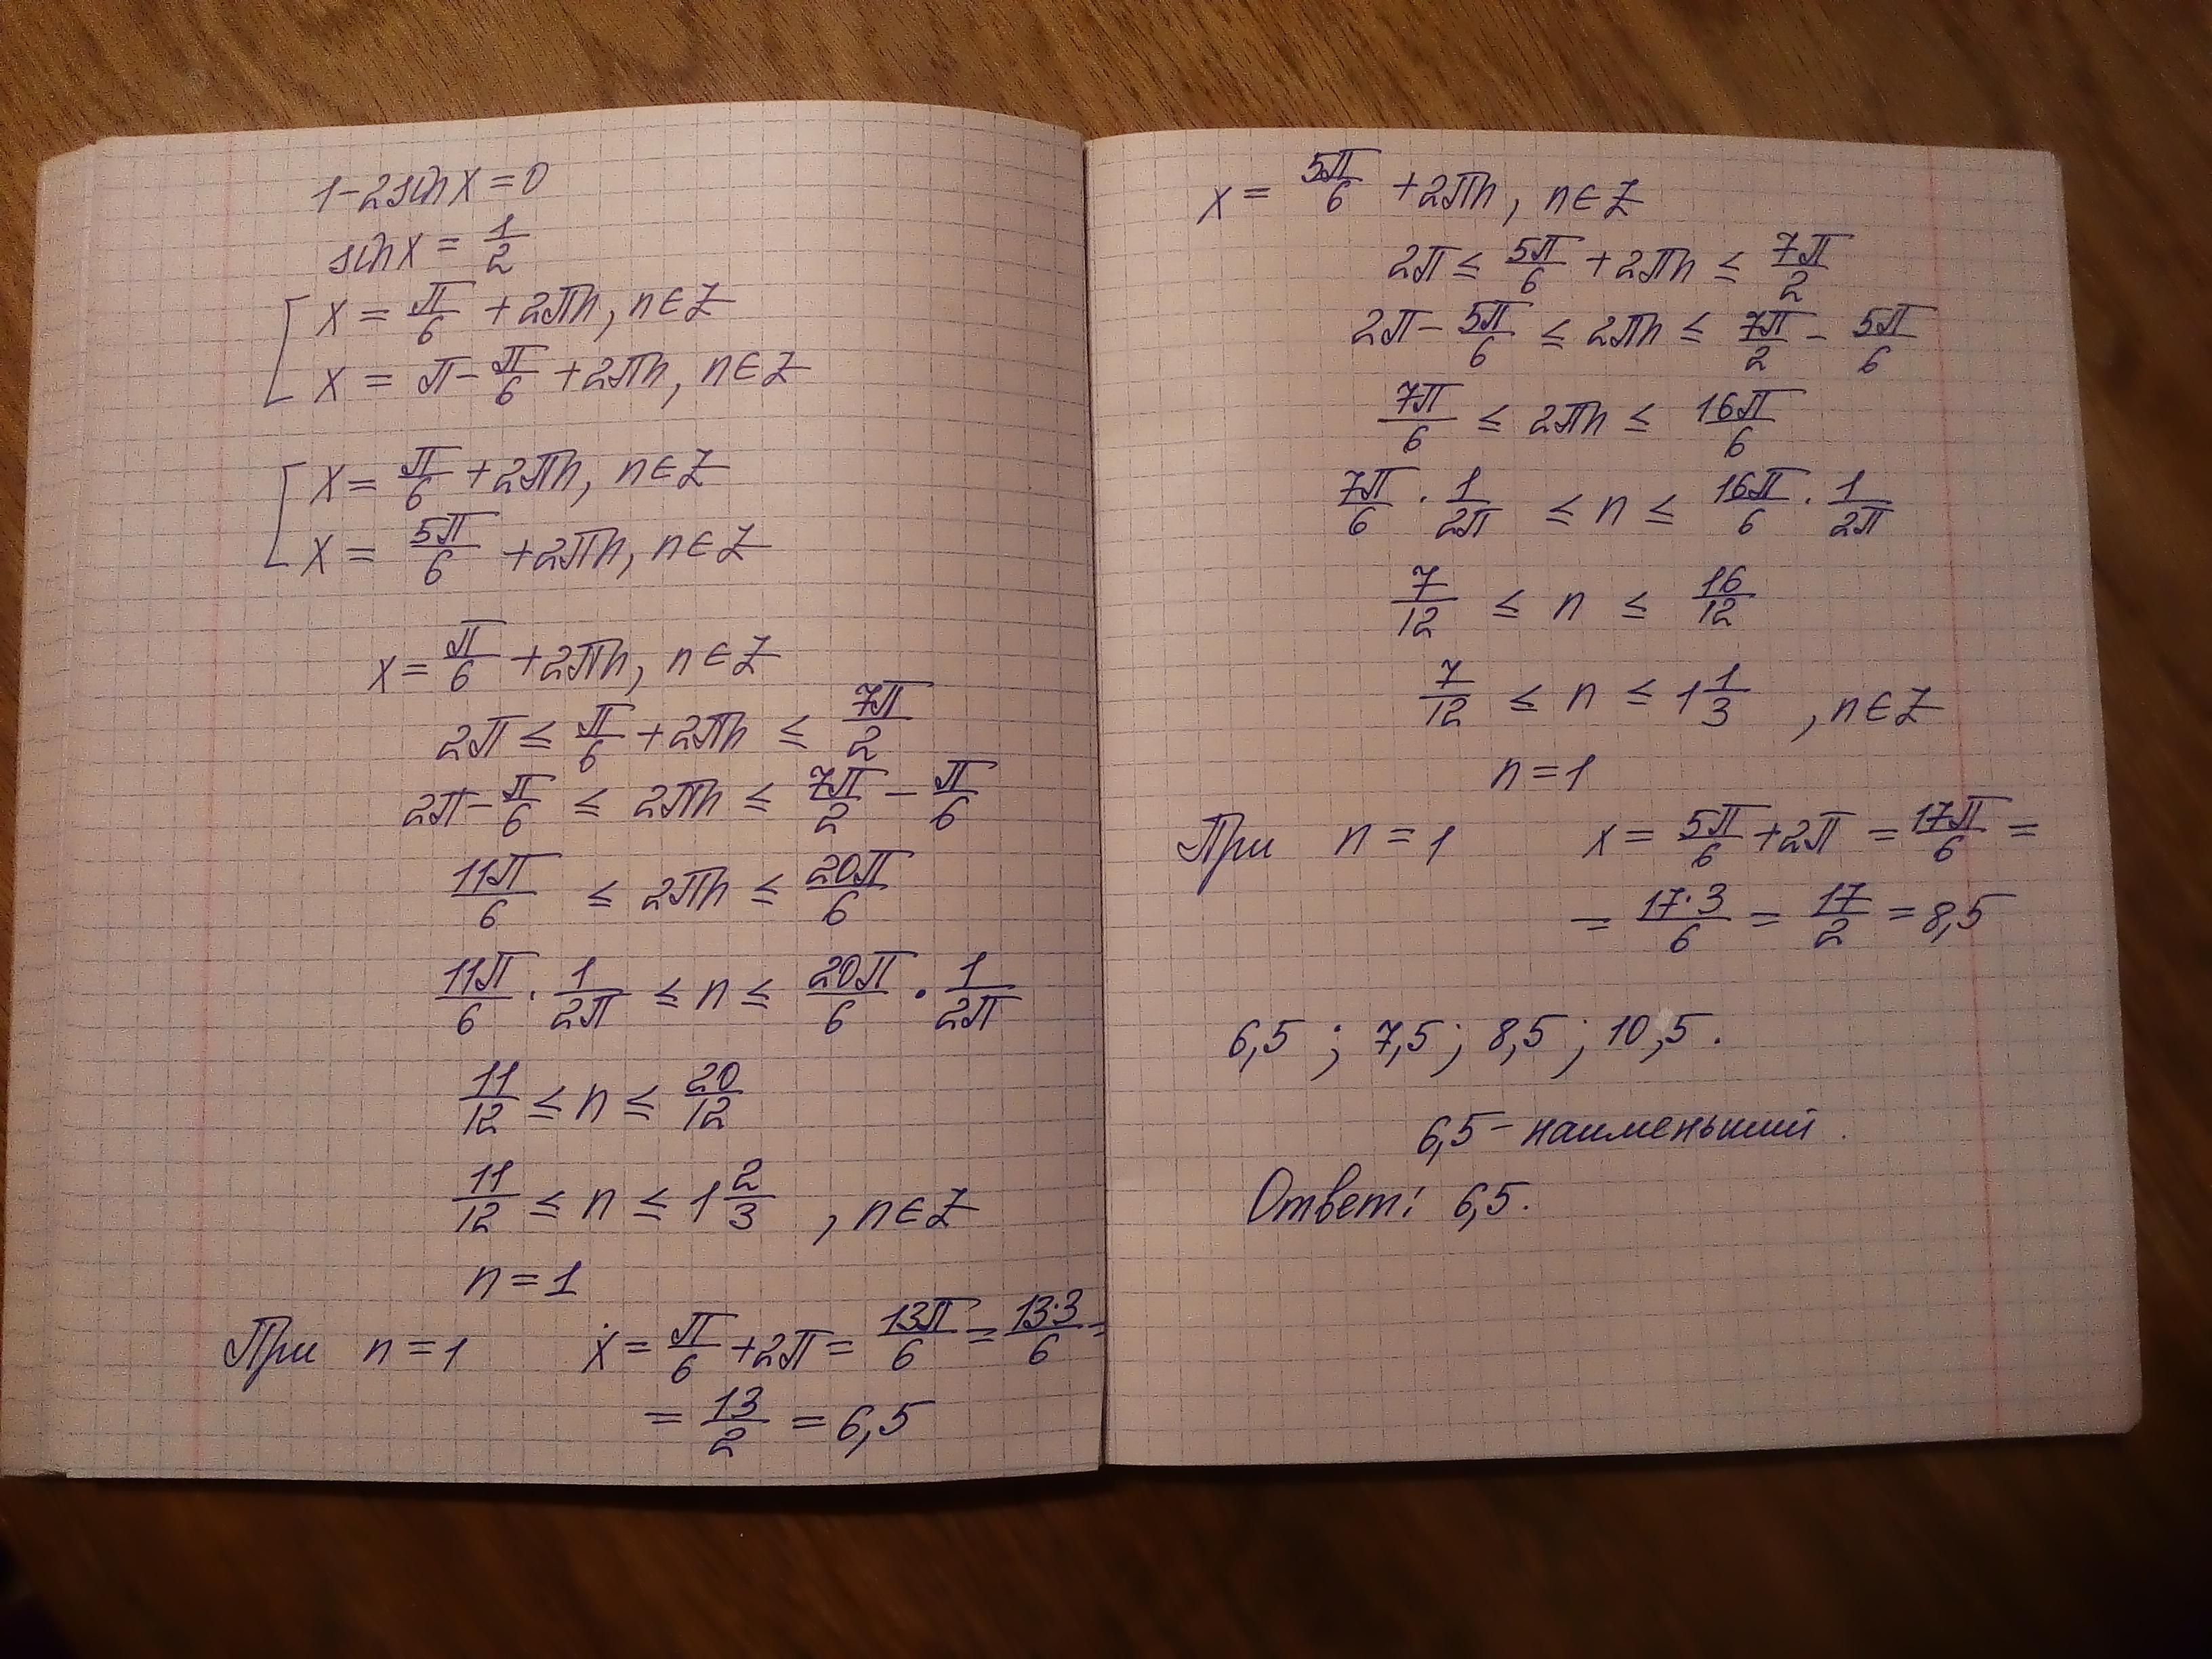 1-2sinx=0
sinx = 1/2
[ x = π/6 + 2πn, n∈Z
x = π - π/6 + 2πn, n∈Z
[ x = π/6 + 2πn, n∈Z
x = 5π/6 + 2πn, n∈Z
x = π/6 + 2πn, n∈Z
2π ≤ π/6 + 2πn ≤ 7π/2
2π - π/6 ≤ 2πn ≤ 7π/2 - π/6
11π/6 ≤ 2πn ≤ 20π/6
11π/6 · 1/2π ≤ n ≤ 20π/6 · 1/2π
11/12 ≤ n ≤ 20/12
11/12 ≤ n ≤ 1 2/3 , n∈Z
n = 1
При n = 1 x = π/6 + 2π = 13π/6 = 13·3/6 =
= 13/2 = 6,5
x = 5π/6 + 2πn, n∈Z
2π ≤ 5π/6 + 2πn ≤ 7π/2
2π - 5π/6 ≤ 2πn ≤ 7π/2 - 5π/6
7π/6 ≤ 2πn ≤ 16π/6
7π/6 · 1/2π ≤ n ≤ 16π/6 · 1/2π
7/12 ≤ n ≤ 16/12
7/12 ≤ n ≤ 1 1/3 , n∈Z
n = 1
При n = 1 x = 5π/6 + 2π = 17π/6 =
= 17·3/6 = 17/2 = 8,5
6,5 ; 7,5 ; 8,5 ; 10,5 .
6,5 - наименьший .
Ответ: 6,5.